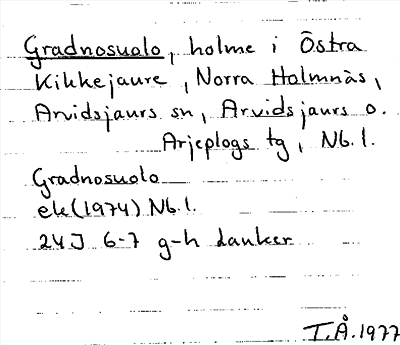 Gradnosualo, holme i Östra
Kikkejaure, Norra Holmnäs,
Arvidsjaurs sn, Arvidsjaurs o.
Arjeplogs tg, Nb. l.
Gradnosualo
ek (1974) Nb. l.
24J 6-7 g-h
T.Å. 1977